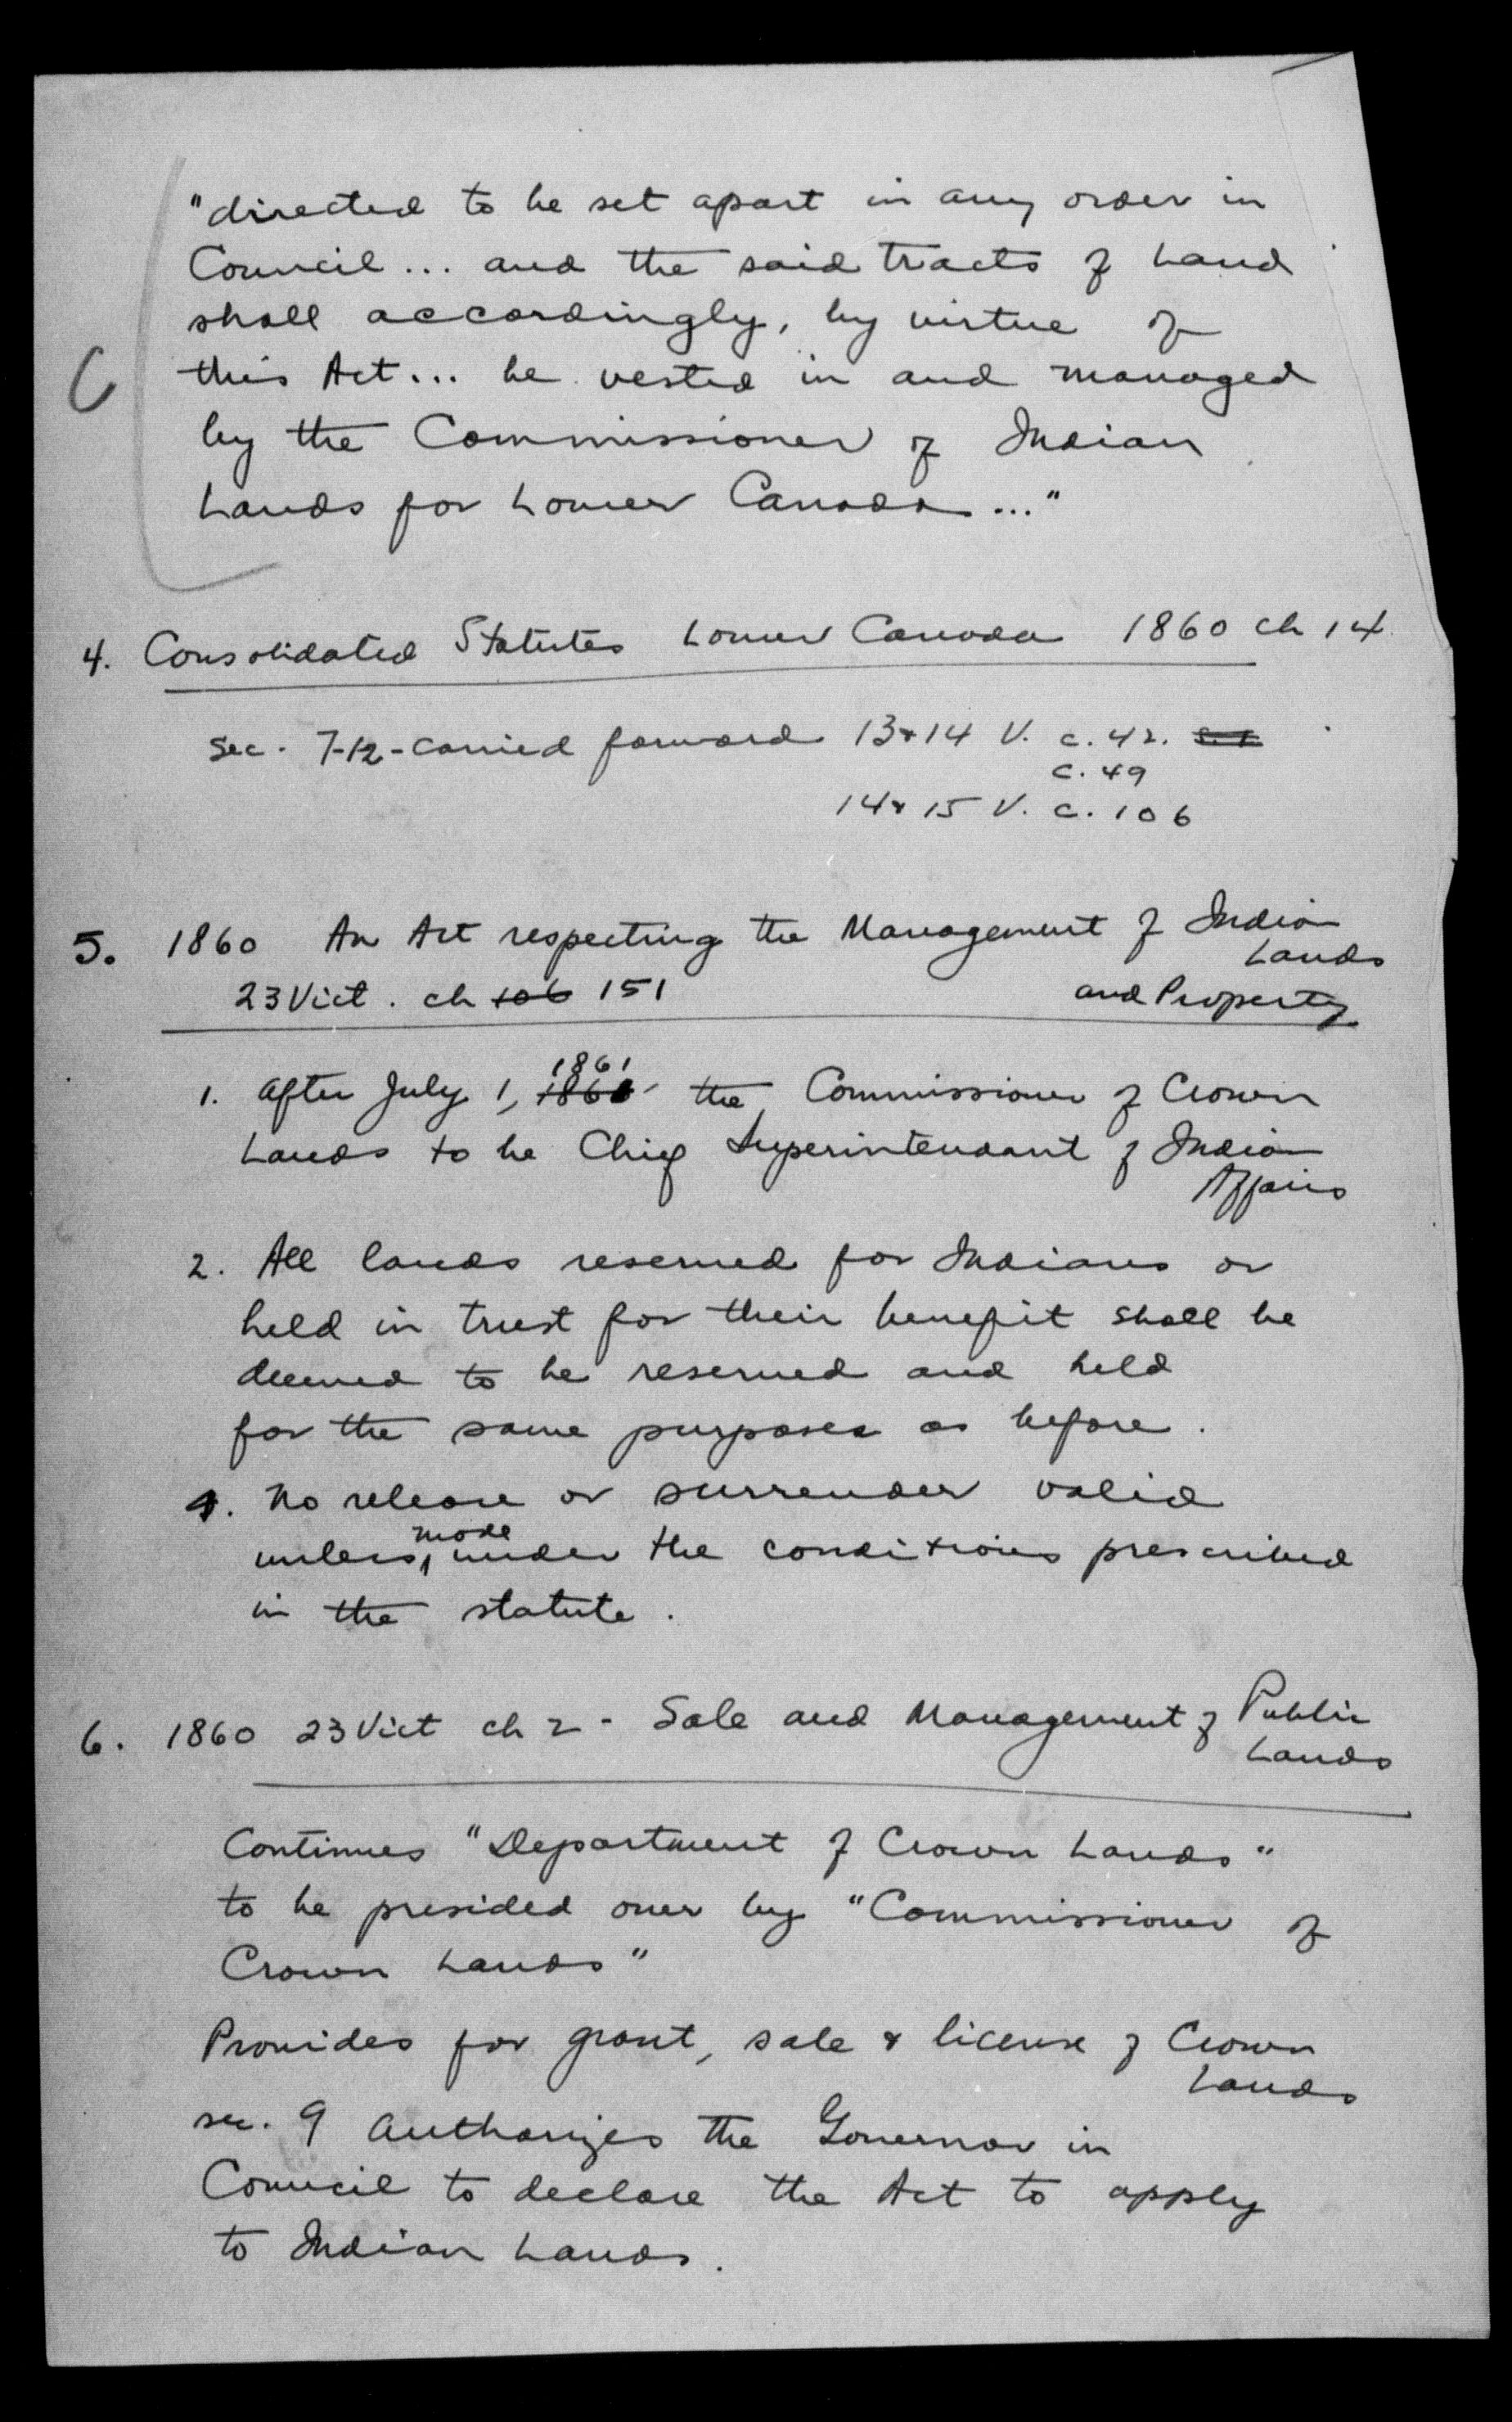 "directed to be set apart in any order in
Council ... and the said tracts of Land
shall accordingly, by virtue of
this Act ... be vested in and managed
by the Commissioner of Indian
Lands for Lower Canada ..."
4. Consolidated Statutes Lower Canada 1860 ch 14
sec. 7-12 - carried forward 13 & 14 V. c. 42. s. 1
c. 49
14 & 15 V. c. 106
5. 1860 An Act respecting the Management of Indian
Lands
23 Vict. ch 106 151 and Property
1861
1. After July 1, 1860 the Commissioner of Crown
Lands to be Chief Superintendant of Indian
Affairs
2. All lands reserved for Indians or
held in trust for their benefit shall be
deemed to be reserved and held
for the same purposes as before.
4. No release or surrender valid
made
unless under the conditions prescribed
in the statute.
6. 1860 23 Vict ch 2 - Sale and Management of Public
Lands
Continues "Department of Crown Lands"
to be presided over by "Commissioner of
Crown Lands"
Provides for grant, sale & license of Crown
Lands
sec. 9 Authorizes the Governor in
Council to declare the Act to apply
to Indian Lands.